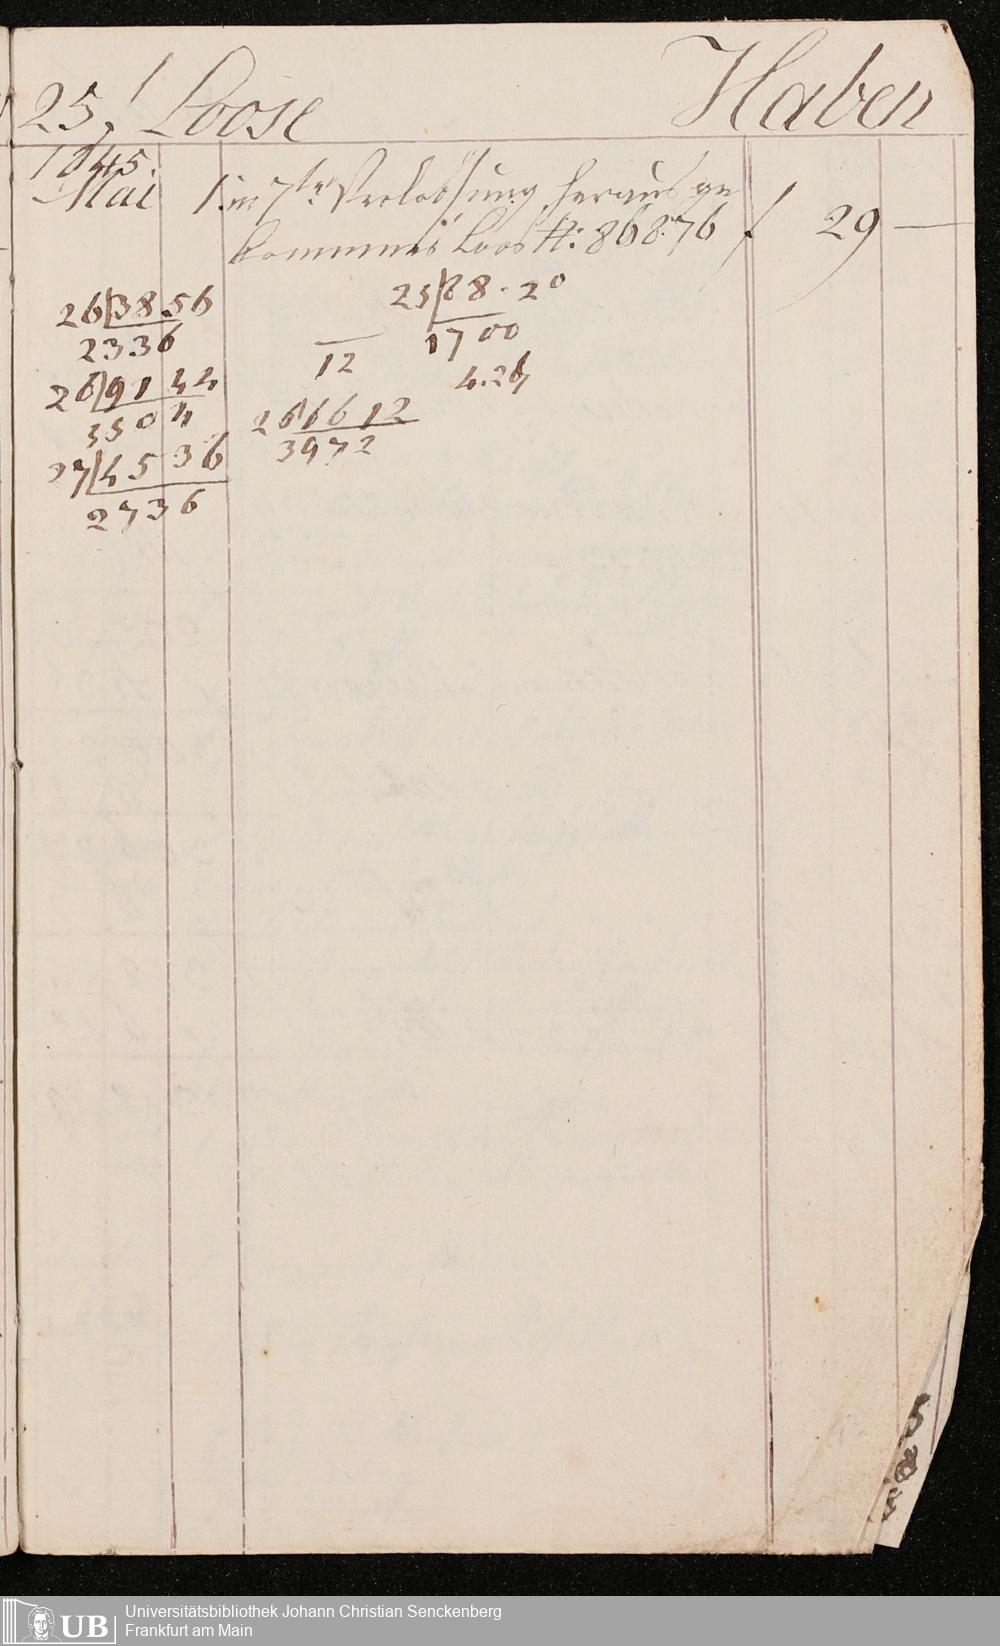 25 f Loose Haben
1845.
Mai 1. in 7ter Verloosung heraus ge
kommenes Loos #: 86876 f 29 —
26 38.56
2336
25 88.20
1700
4.26
12
26 91 44
3504
26 16 12
3972
27 45 36
2736
UB Universitätsbibliothek Johann Christian Senckenberg
Frankfurt am Main